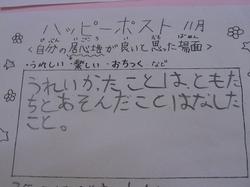 ハッピーポスト 11月
<自分の居心地が良いと思った場面>
・うれしい・楽しい・おちつく など
うれしかったことは、ともだ
ちとあそんだことはなした
こと。